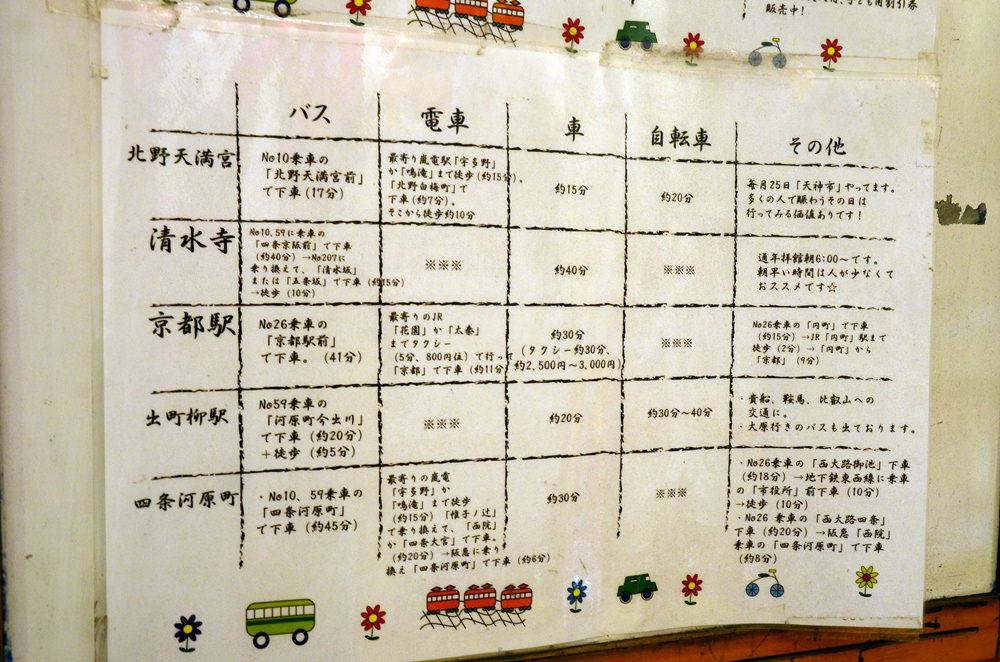 販売中！
バス
電車
車
自転車
その他
北野天満宮
No10乗車の
「北野天満宮前」
で下車（17分）
最寄り嵐電駅「宇多野」
か「鳴滝」まで徒歩（約15分）、
「北野白梅町」で
下車（約7分）。
そこから徒歩約10分
約15分
約20分
毎月25日「天神市」やってます。
多くの人で賑わうその日は
行ってみる価値ありです！
清水寺
No10,59に乗車の
「四条京阪前」で下車
（約40分）→No207に
乗り換えて、「清水坂」
または「五条坂」で下車（約15分）
→徒歩（10分）
※※※
約40分
※※※
通年拝館朝6:00～です。
朝早い時間は人が少なくて
おススメです☆
京都駅
No26乗車の
「京都駅前」
で下車。（41分）
最寄りのJR
「花園」か「太秦」
までタクシー
（5分、800円位）で行って
「京都」で下車（約11分）
約30分
（タクシー約30分、
約2,500円～3,000円）
※※※
No26乗車の「円町」で下車
（約15分）→JR「円町」駅まで
徒歩（2分）→「円町」から
「京都」（9分）
出町柳駅
No59乗車の
「河原町今出川」
で下車（約20分）
＋徒歩（約5分）
※※※
約20分
約30分～40分
・貴船、鞍馬、比叡山への
交通に。
・大原行きのバスも出ております。
四条河原町
・No10、59乗車の
「四条河原町」
で下車（約45分）
最寄りの嵐電
「宇多野」か
「鳴滝」まで徒歩
（約15分）「帷子ノ辻」
で乗り換えて、「西院」
か「四条大宮」で下車。
（約20分）→阪急に乗り
換え「四条河原町」で下車（約6分）
約30分
※※※
・No26乗車の「西大路御池」下車
（約18分）→地下鉄東西線に乗車
の「市役所」前下車（10分）
→徒歩（10分）
・No26 乗車の「西大路四条」
下車（約20分）→阪急「西院」
乗車の「四条河原町」で下車
（約8分）